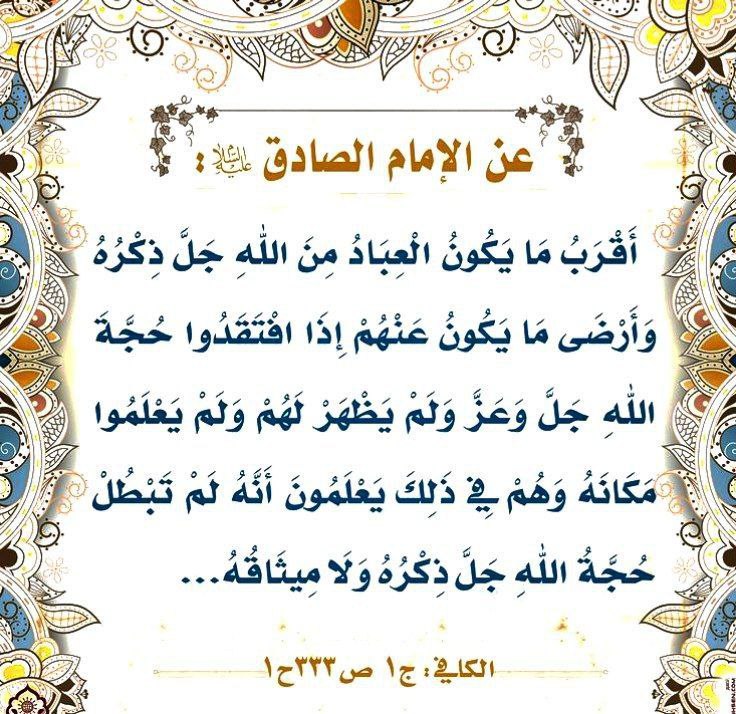 عن الإمام الصادق عليه السلام :
أَقْرَبُ مَا يَكُونُ الْعِبَادُ مِنَ اللهِ جَلَّ ذِكْرُهُ
وَأَرْضَى مَا يَكُونُ عَنْهُمْ إِذَا افْتَقَدُوا حُجَّةَ
اللهِ جَلَّ وَعَزَّ وَلَمْ يَظْهَرْ لَهُمْ وَلَمْ يَعْلَمُوا
مَكَانَهُ وَهُمْ فِي ذَلِكَ يَعْلَمُونَ أَنَّهُ لَمْ تَبْطُلْ
حُجَّةُ اللهِ جَلَّ ذِكْرُهُ وَلَا مِيثَاقُهُ...
الكافي: ج١ ص٣٣٣ح١